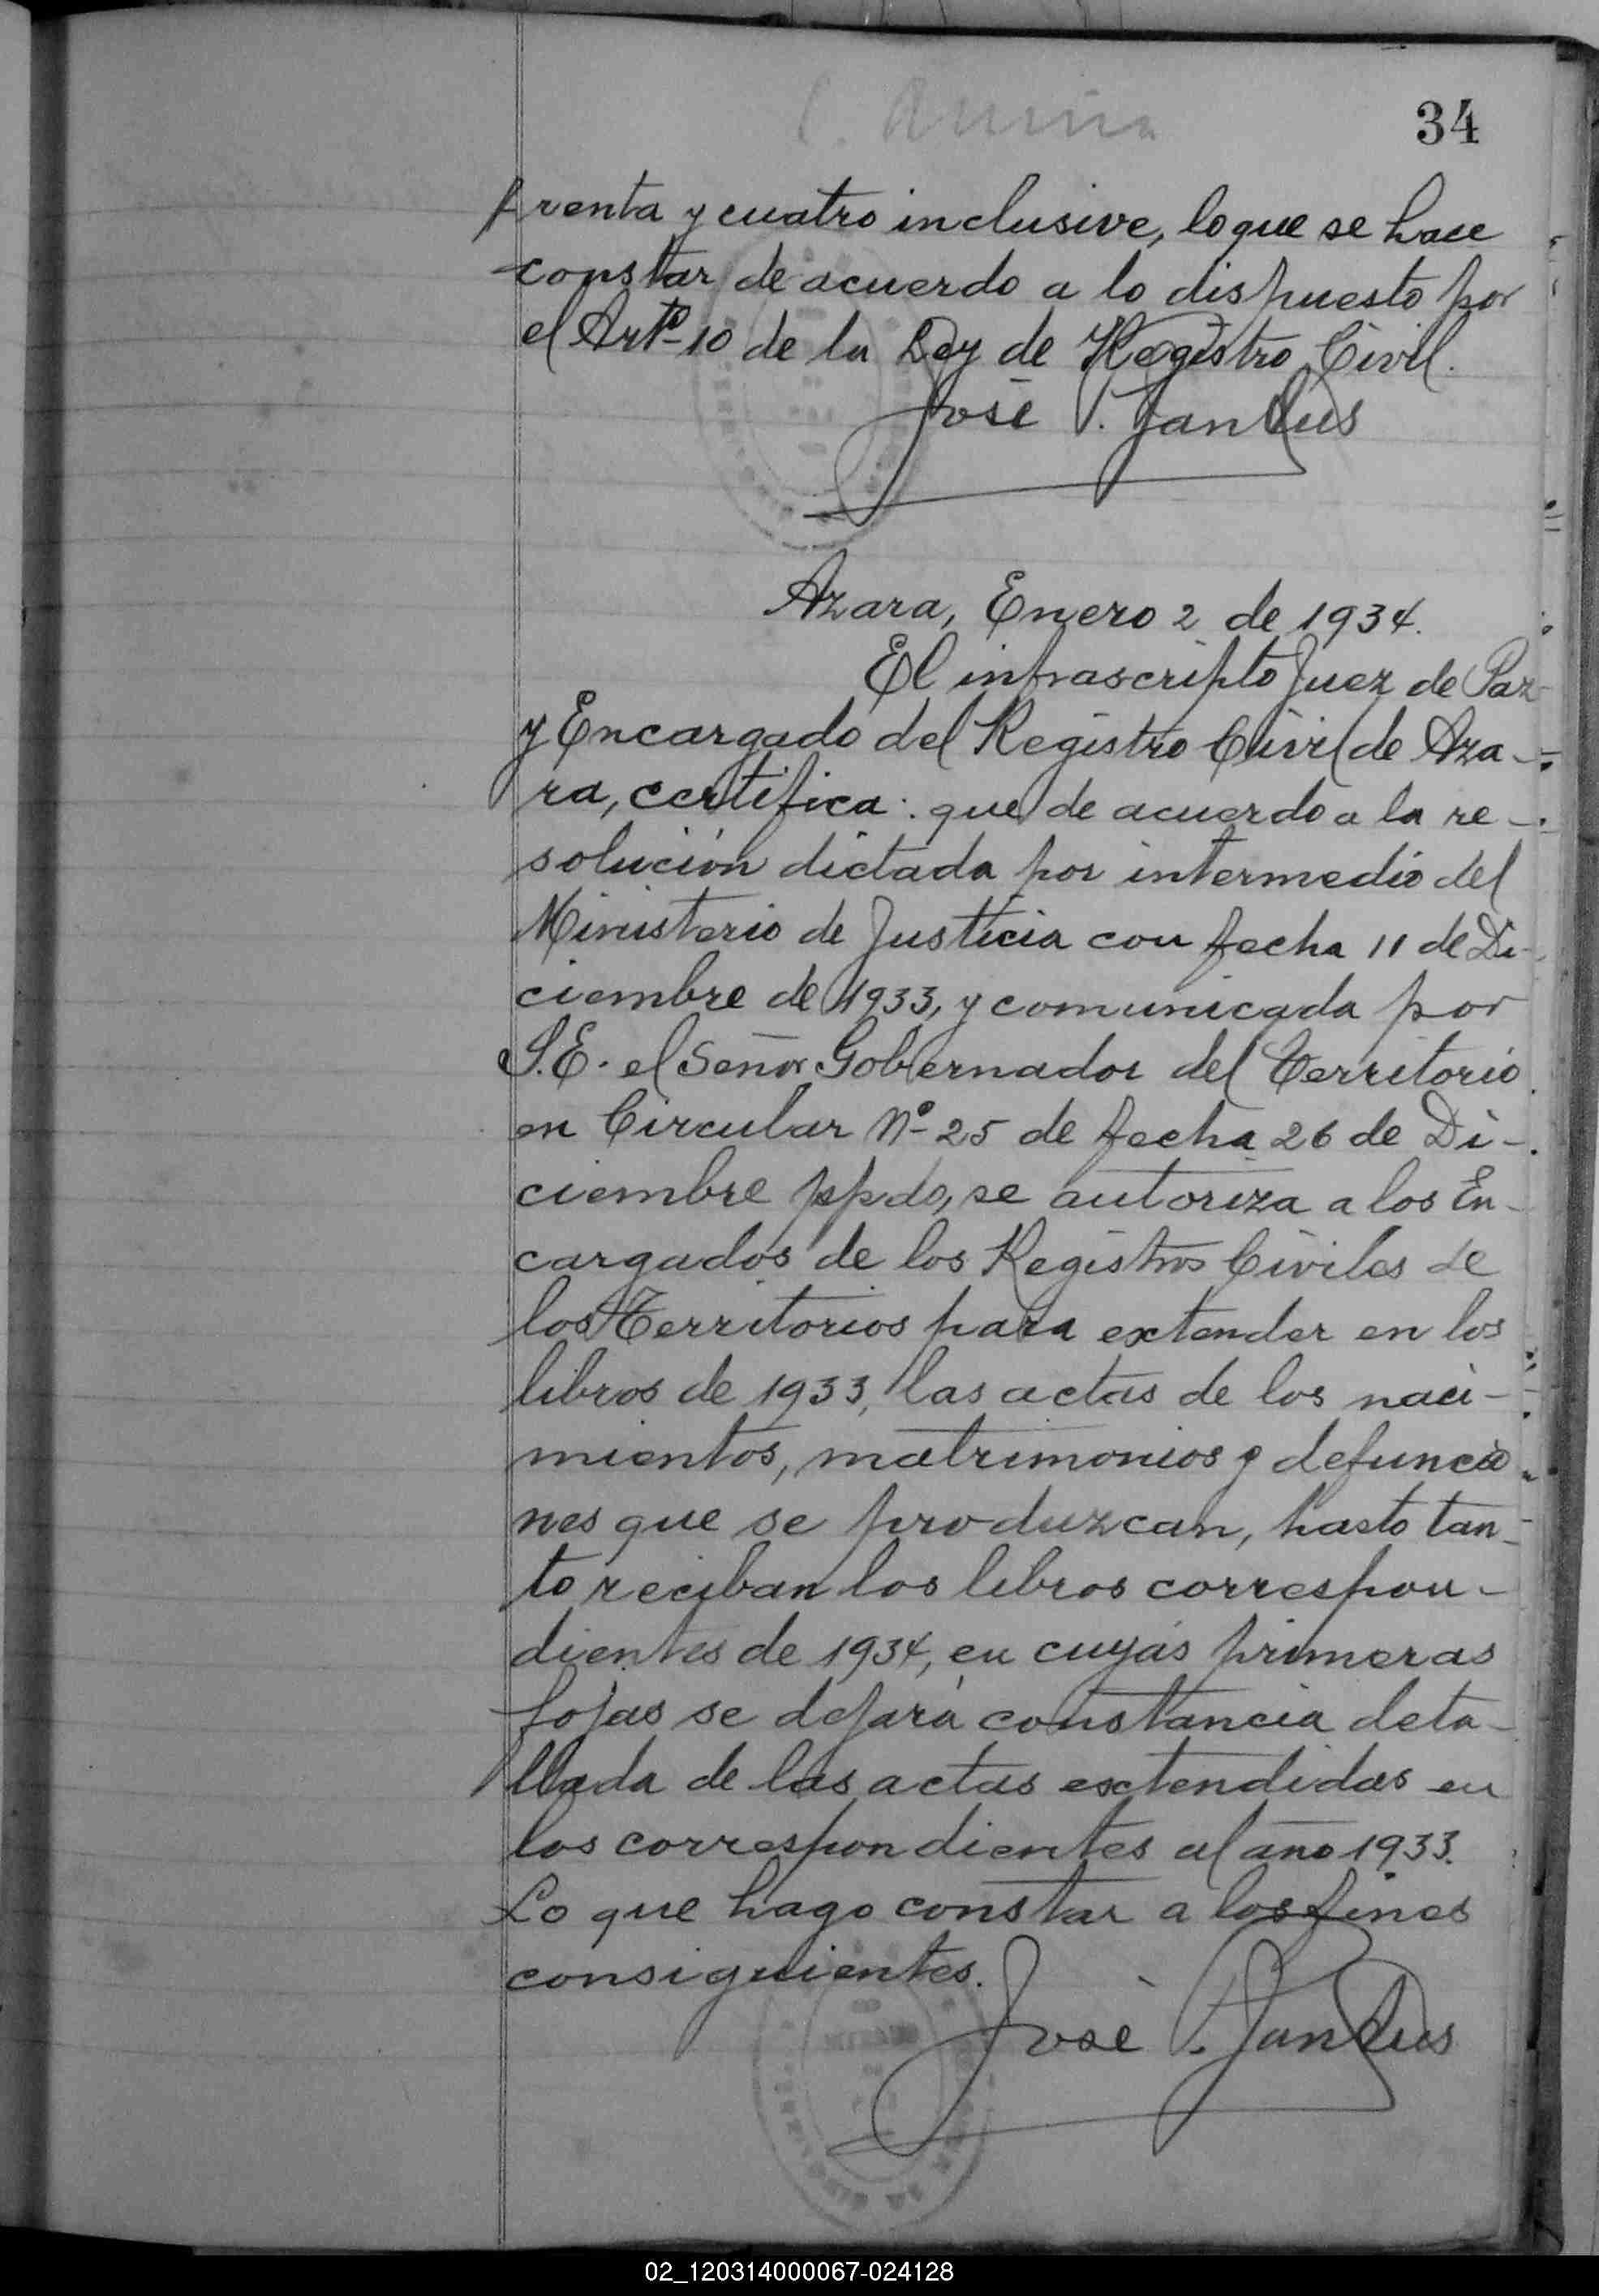 34
trenta y cuatro inclusive, lo que se hace
constar de acuerdo a lo dispuesto por
el Artº 10 de la Ley de Registro Civil.
José
Azara, Enero 2 de 1934.
El infrascripto Juez de Paz
y Encargado del Registro Civil de Aza-
ra, certifica: que de acuerdo a la re-
solución dictada por intermedio del
Ministerio de Justicia con fecha 11 de Di-
ciembre de 1933, y comunicada por
S.E. el Señor Gobernador del Territorio
en Circular Nº 25 de fecha 26 de Di-
ciembre ppdo, se autoriza a los En-
cargados de los Registros Civiles de
los Territorios para extender en los
libros de 1933, las actas de los naci-
mientos, matrimonios y defuncio
nes que se produzcan, hasta tan-
to reciban los libros correspon-
dientes de 1934, en cuyas primeras
fojas se dejará constancia deta-
llada de las actas extendidas en
los correspondientes al año 1933.
Lo que hago constar a los fines
consiguientes.
José
02_120314000067-024128